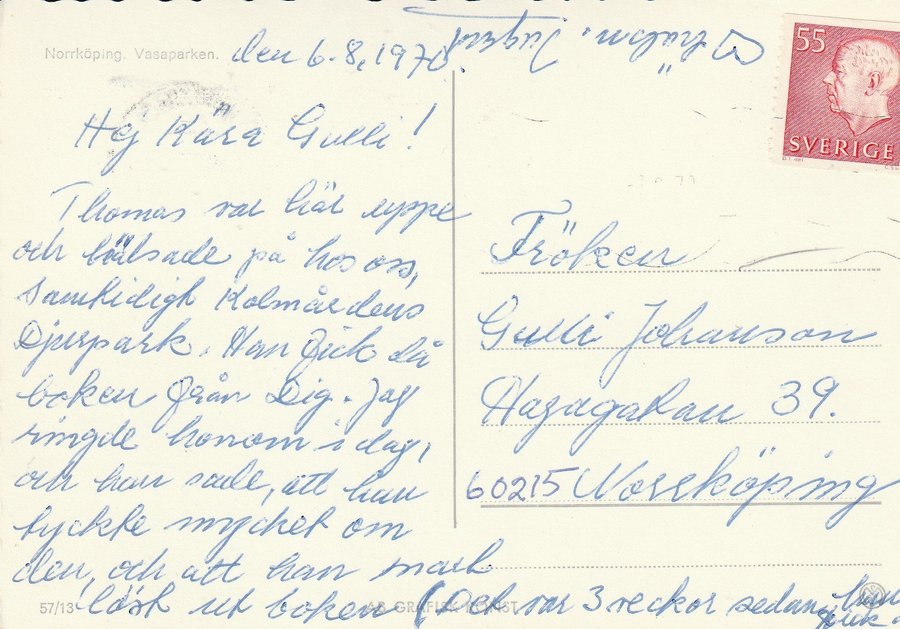 Norrköping. Vasaparken. den 6.8,1970.
55
SVERIGE
Hej Kära Gulli!
Thomas var här uppe
och hälsade på hos oss,
samtidigt Kolmårdens
Djurpark. Han fick då
boken från Dig. Jag
ringde honom i dag,
och han sade, att han
tyckte mycket om
den, och att han
läst ut boken (Det var 3 veckor sedan han
fick
Fröken
Gulli Johanson
Hagagatan 39.
60215 Norrköping
57/13 AB GRAFISK KONST